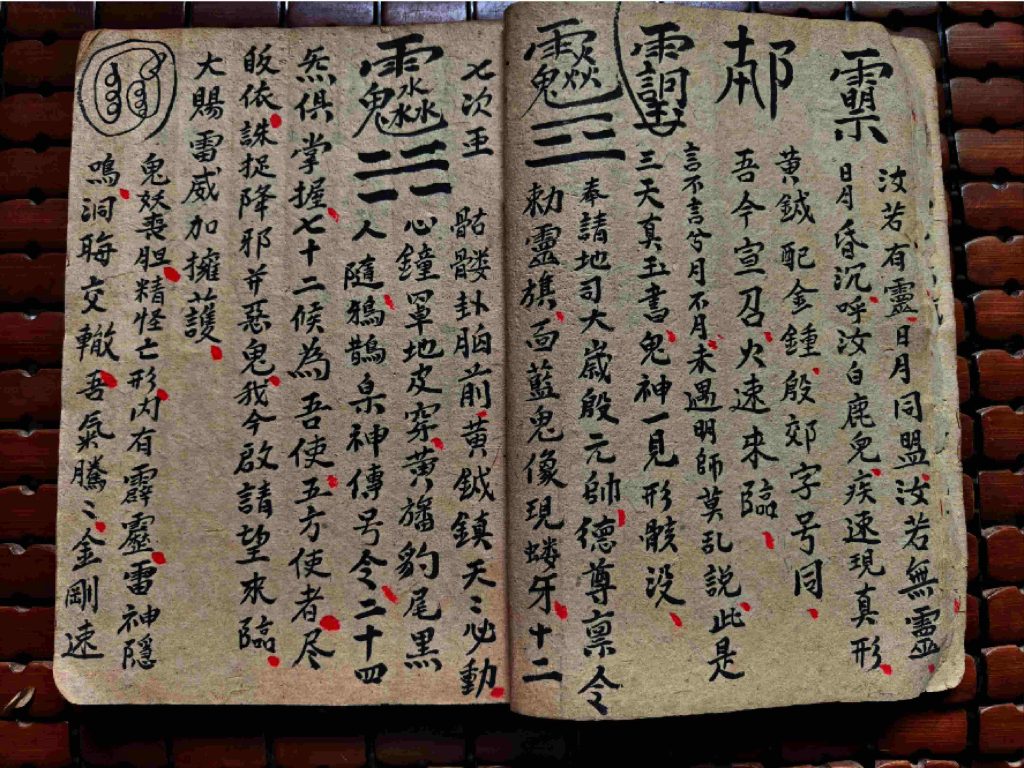 汝若有靈日月同盟汝若無靈
日月昏沉呼汝白鹿兒疾速現真形
黄鉞配金鍾殷郊字号同
吾今宣召火速来臨
言不言兮月不月未遇明師莫乱説此是
三天真玉書鬼神一見形骸没
奉請地司大歳殷元帥德尊禀令
勅靈旗面藍鬼像現螻牙十二
七次
骷髅卦胸前黄鉞鎮天〻必動
心鐘罩地皮穿黄旛豹尾黑
人隨鴉鵲梟神傳号令二十四
炁俱掌握七十二候為吾使五方使者尽
皈依誅捉降邪并惡鬼我今啟請望来臨
大賜雷威加擁護
鬼妖喪胆精怪亡形内有霹靂雷神隠
鳴洞晦交轍吾氣騰〻金剛速